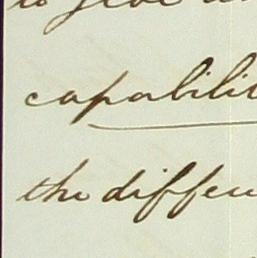 to give
capabilit
the differe